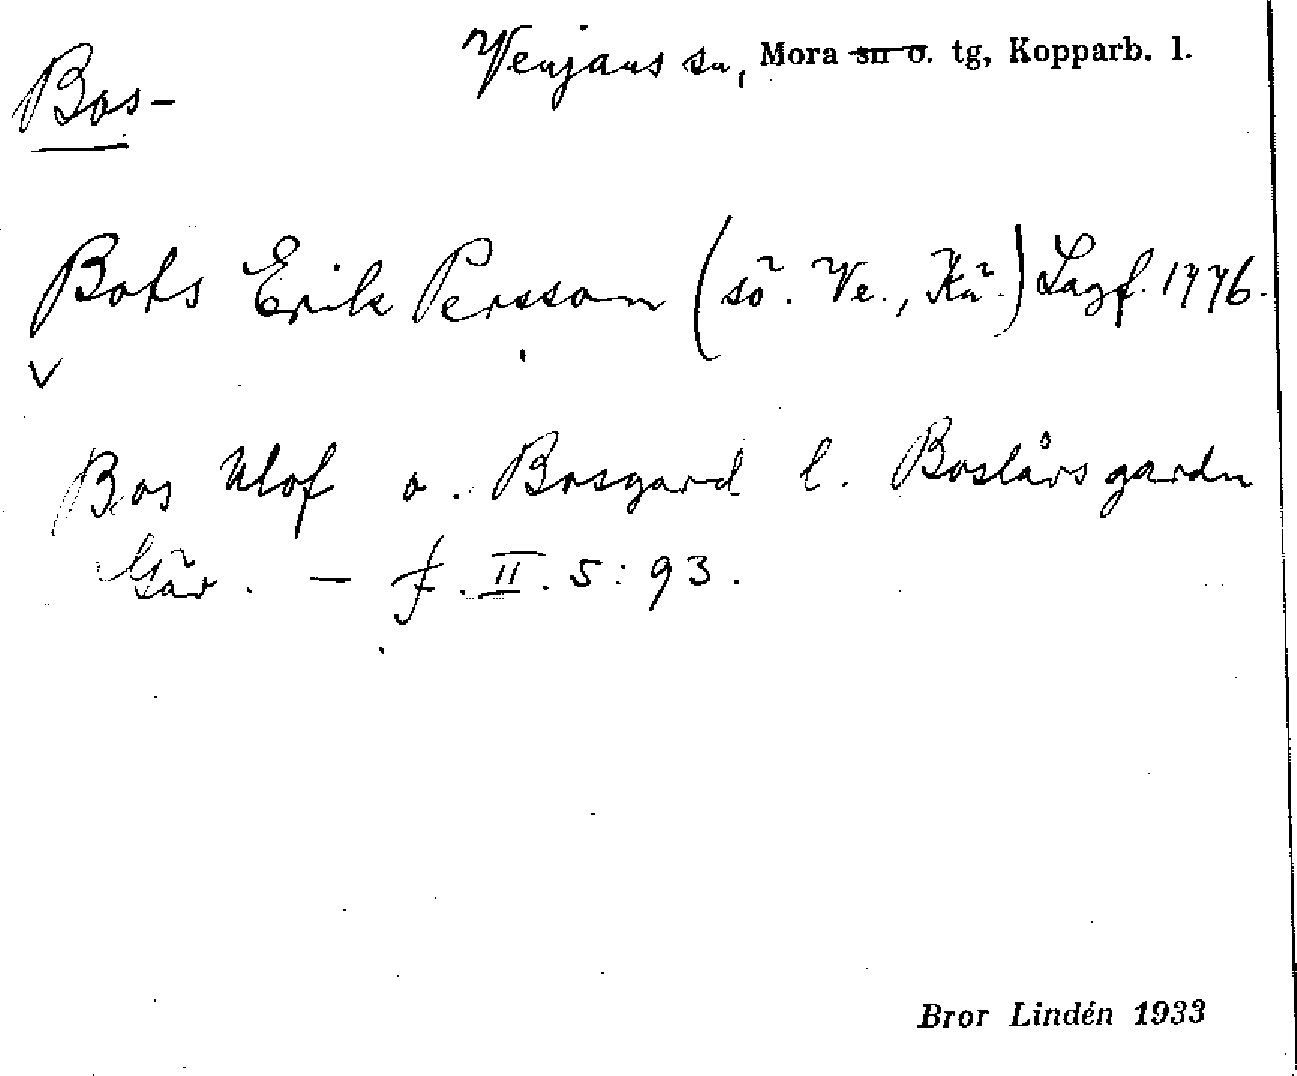 Venjans sn, Mora sn o. tg, Kopparb. l.
Bos-
Bots Erik Persson (sö. Ve., Kä.) Lagf. 1776.
Bos Ulof o. Bosgard l. Boslårsgardn
Gär. - f. II. 5:93.
Bror Lindén 1933